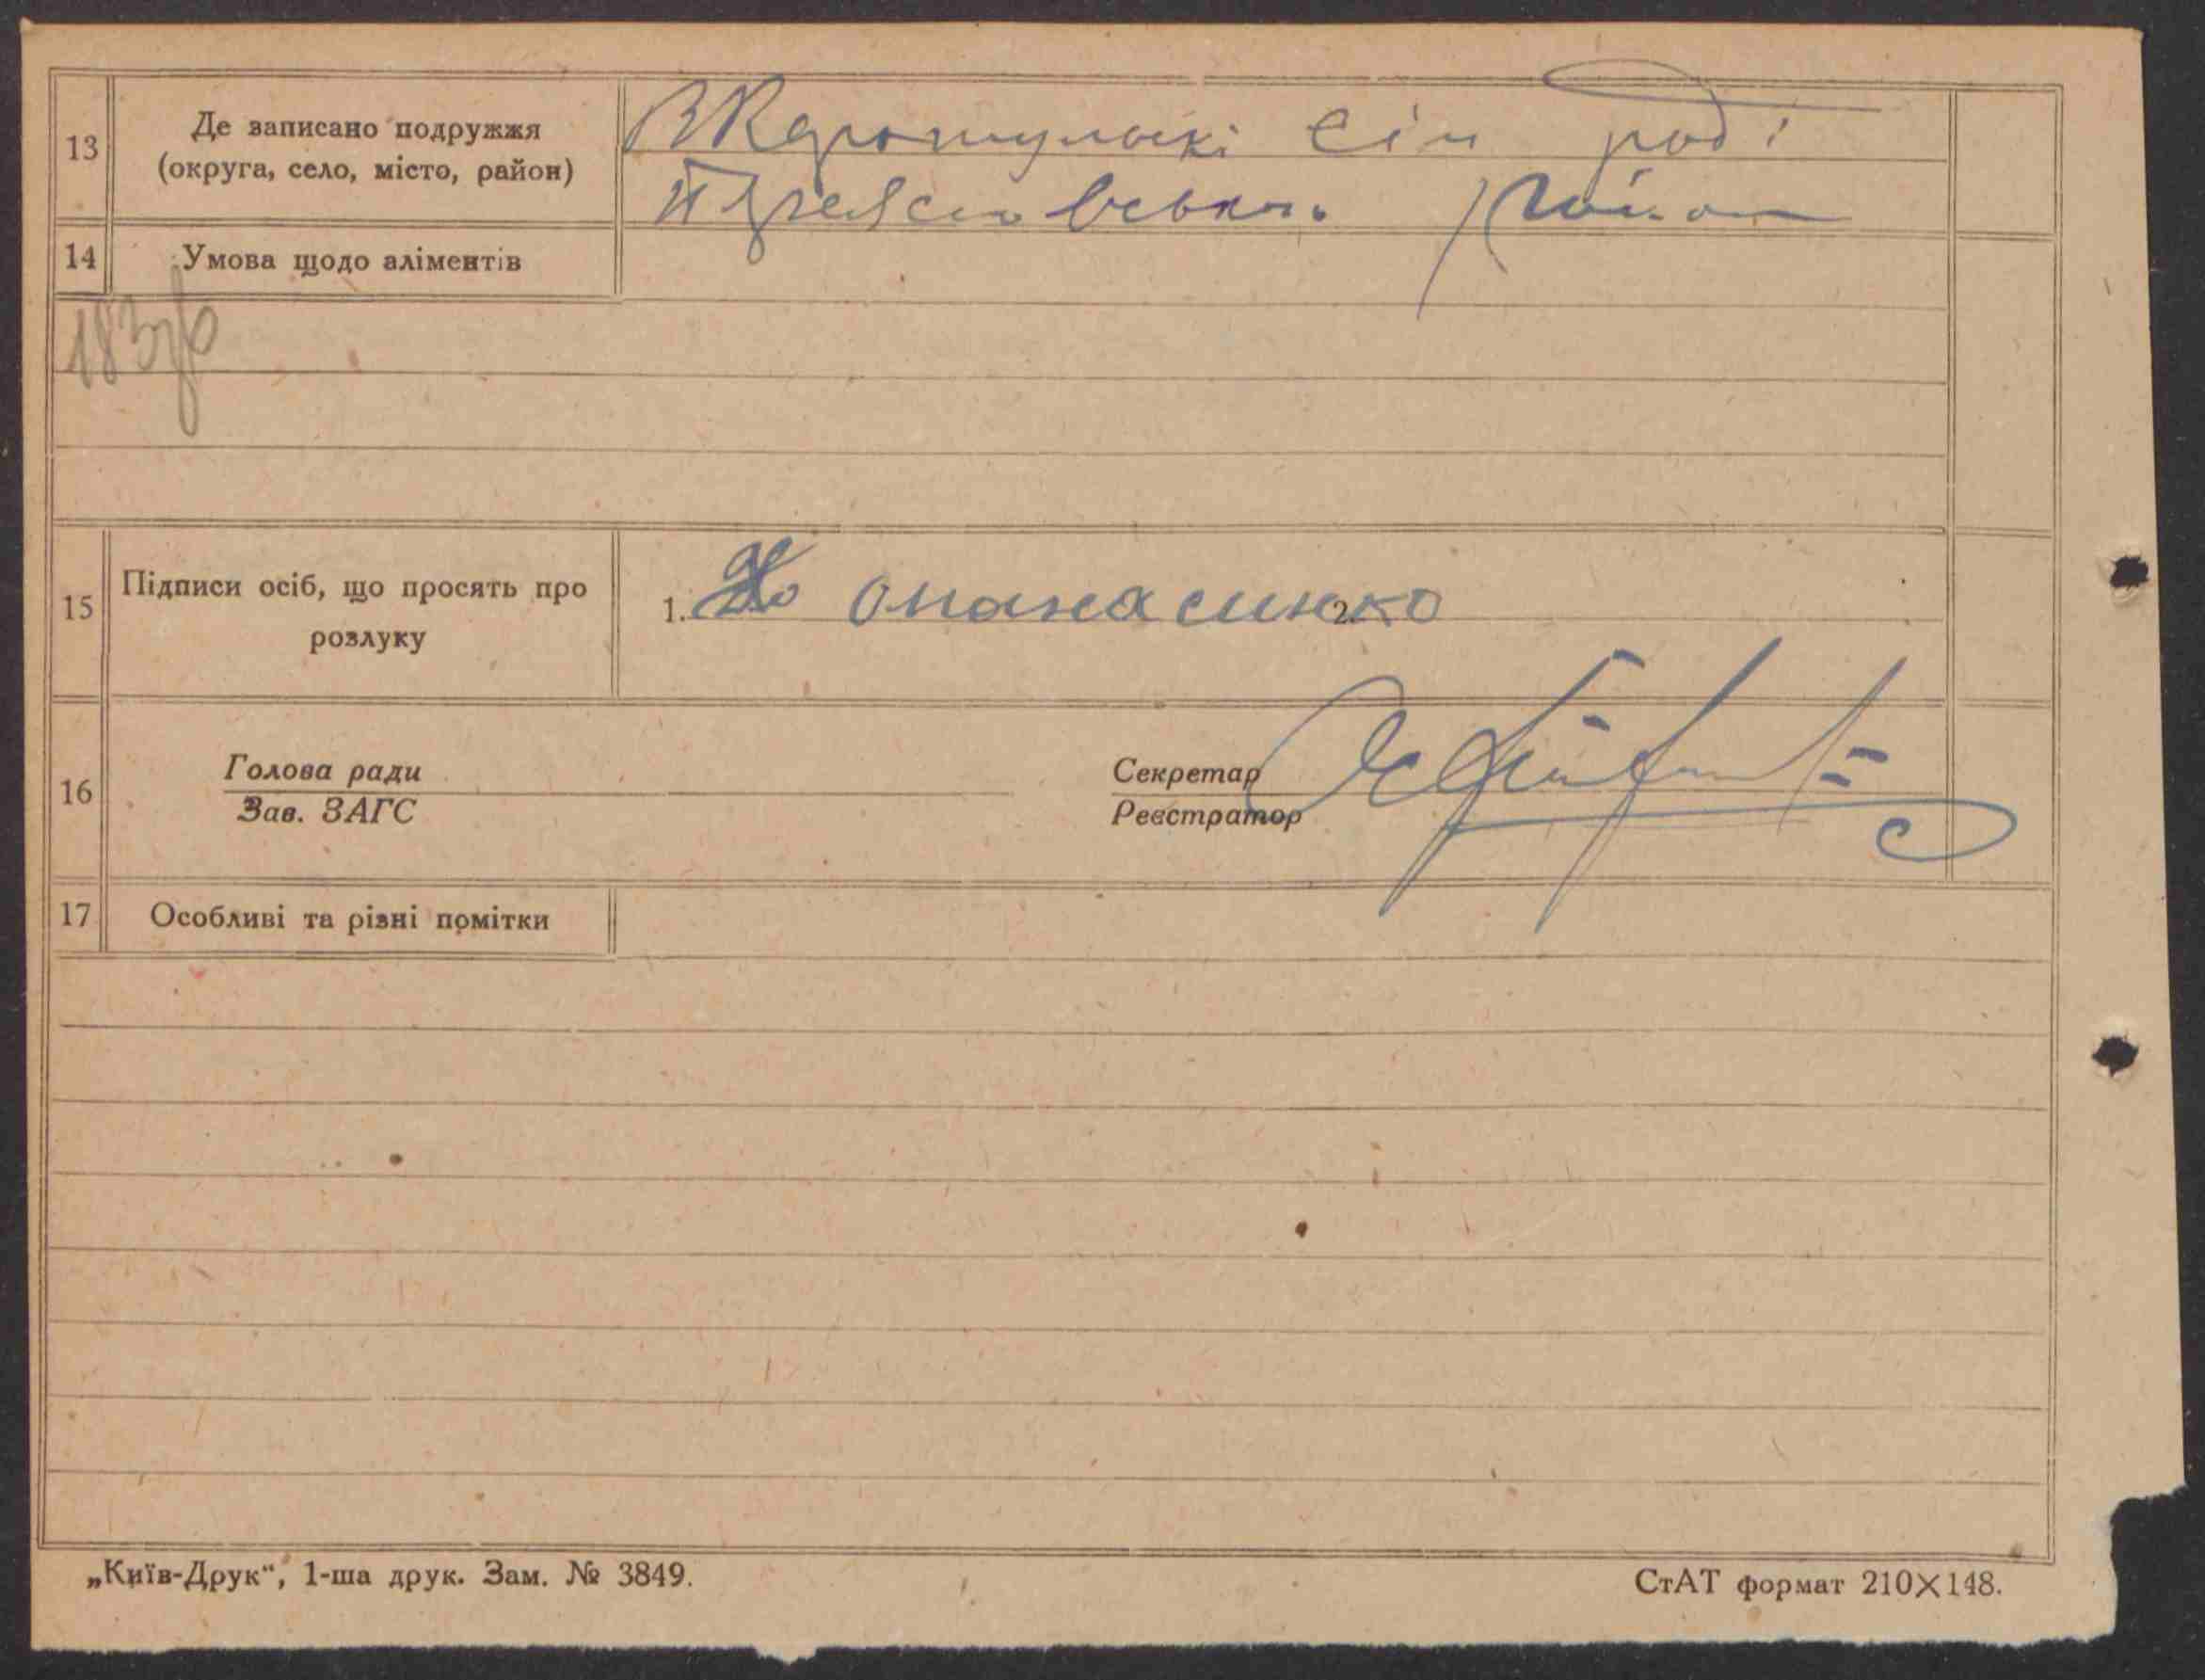 13 Де записано подружжя (округа, село, місто, район)
В Каратульскі сіл раді
Переяславського району
14 Умова щодо аліментів
183зв
15 Підписи осіб, що просять про розлуку
1. Хо Опанасинко 2.
16 Голова ради Секретар
Зав. ЗАГС Реєстратор
17 Особливі та різні помітки
„Київ-Друк“, 1-ша друк. Зам. № 3849. СтАТ формат 210×148.